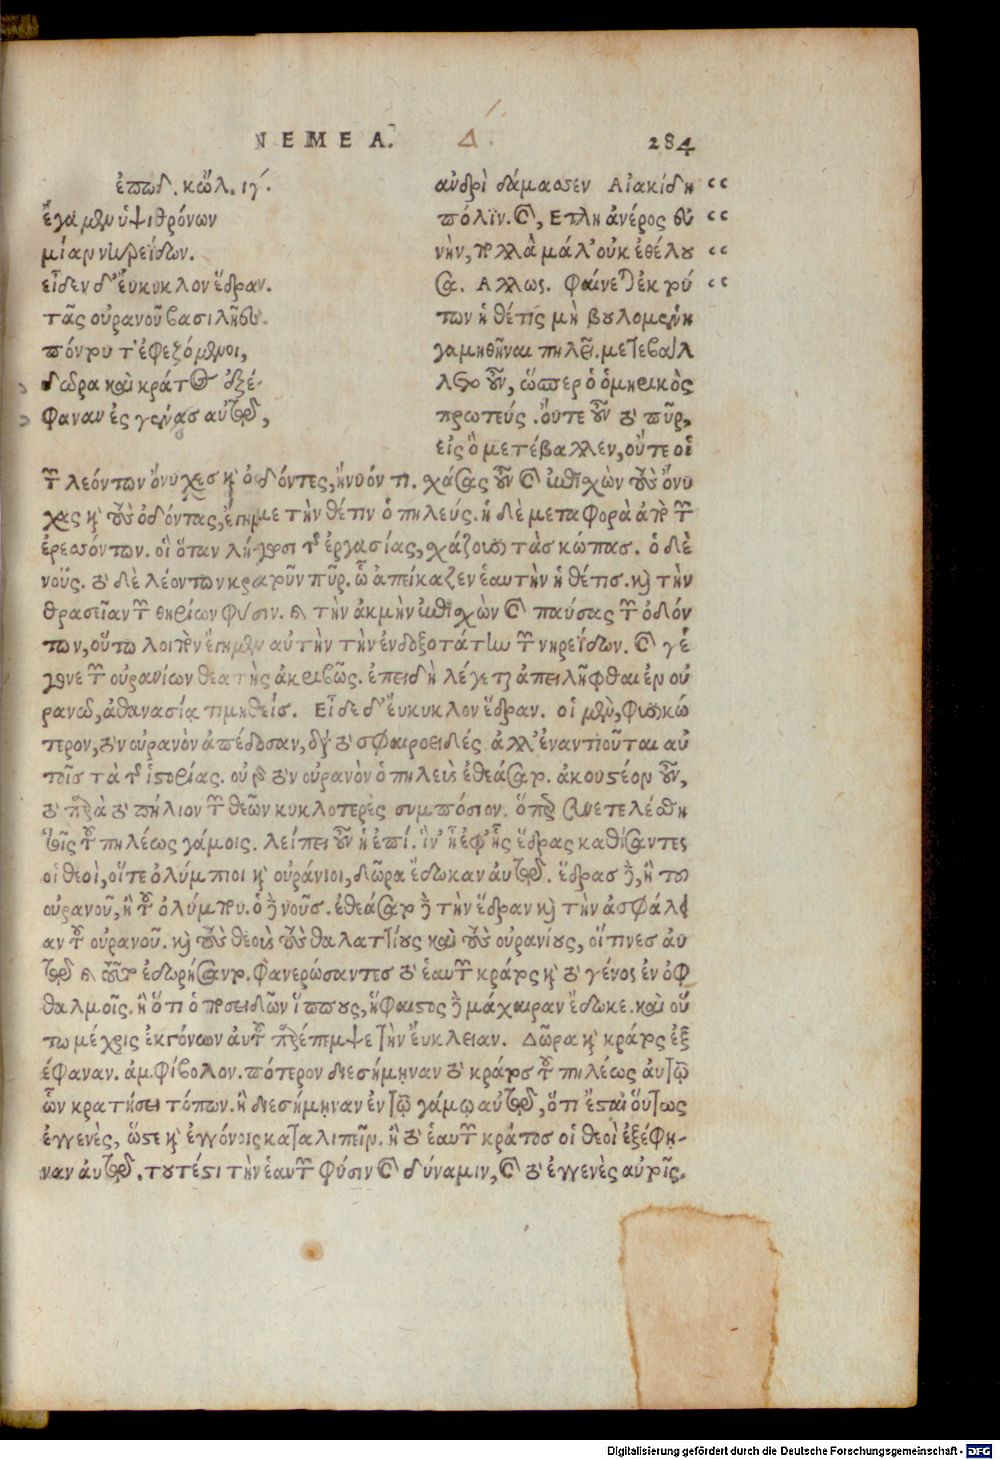 ΝΕΜΕΑ. Δ. 284
ἐπῳδ. κώλ. ιγ΄.
ἔγαμεν ὑψιθρόνων
μίαν νηρεΐδων.
εἶδεν δ᾽ εὔκυκλον ἕδραν.
τᾶς οὐρανοῦ βασιλῆες
πόντου τ᾽ ἐφεζόμενοι,
δῶρα καὶ κράτος ἐξέ-
φαναν ἐς γενεὰς αὐτῷ,
ἀνδρὶ δάμασσεν Αἰακίδῃ “
πόλϊν. καὶ, Ετλην ἀνέρος εὐ “
νὴν, πολλὰ μάλ᾽ οὐκ ἐθέλου “
σα. Αλλως. φαίνεται ἐκ τού “
των ἡ θέτις μὴ βουλομένη
γαμηθῆναι πηλεῖ. μεταβάλ
λειν οὖν, ὥσπερ ὁ ὁμηρικὸς
πρωτεύς. οὔτε οὖν τὸ πῦρ,
εἰς ὃ μετέβαλλεν, οὔτε οἱ
τῶν λεόντων ὄνυχες καὶ ὀδόντες, ἤνυόν τι. χάσας οὖν καὶ ἐπισχὼν τοὺς ὄνυ
χας καὶ τοὺς ὀδόντας, ἔγημε τὴν θέτιν ὁ πηλεύς. ἡ δὲ μεταφορὰ ἀπὸ τῶν
ἐρεσσόντων. οἳ ὅταν λήγωσι τῆς ἐργασίας, χάζουσι τὰς κώπας. ὁ δὲ
νοῦς. τὸ δὲ λεόντων κρατοῦν πῦρ. ᾧ ἀπείκαζεν ἑαυτὴν ἡ θέτις. καὶ τὴν
θρασεῖαν τῶν θηρίων φύσιν. καὶ τὴν ἀκμὴν ἐπισχὼν καὶ παύσας τῶν ὀδόν
των, οὕτω λοιπὸν ἔγημεν αὐτὴν τὴν ἐνδοξοτάτην τῶν νηρεΐδων. καὶ γέ
γονε τῶν οὐρανίων θεατὴς ἀκριβῶς. ἐπειδὴ λέγεται ἀπειλῆφθαι ἐν οὐ
ρανῷ, ἀθανασίᾳ τιμηθείς. Εἶδε δ᾽ εὔκυκλον ἕδραν. οἱ μὲν, φυσικώ
τερον, τὸν οὐρανὸν ἀπέδοσαν, διὰ τὸ σφαιροειδές. ἀλλ᾽ ἐναντιοῦται αὐ
τοῖς τὰ τῆς ἱστορίας. οὐ γὰρ τὸν οὐρανὸν ὁ πηλεὺς ἐθεάσατο. ἀκουστέον οὖν,
τὸ παρὰ τὸ πήλιον τῶν θεῶν κυκλοτερὲς συμπόσιον. ὅπερ συνετελέσθη
τοῖς τοῦ πηλέως γάμοις. λείπει οὖν ἡ ἐπί. ἵν᾽ ᾖ ἐφ᾽ ἧς ἕδρας καθίσαντες
οἱ θεοὶ, οἵ τε ὀλύμπιοι καὶ οὐράνιοι, δῶρα ἔδωκαν αὐτῷ. ἕδρας δὲ, ἢ τοῦ
οὐρανοῦ, ἢ τοῦ ὀλύμπου. ὁ δὲ νοῦς. ἐθεάσατο δὲ τὴν ἕδραν καὶ τὴν ἀσφάλει
αν τοῦ οὐρανοῦ. καὶ τοὺς θεοὺς τοὺς θαλαττίους καὶ τοὺς οὐρανίους, οἵτινες αὐ
τῷ καὶ ταῦτα ἐδωρήσαντο. φανερώσαντες τὸ ἑαυτῶν κράτος καὶ τὸ γένος ἐν ὀφ
θαλμοῖς. ἢ ὅτι ὁ ποσειδῶν ἵππους, ἥφαιστος δὲ μάχαιραν ἔδωκε. καὶ οὕ
τω μέχρις ἐκγόνων αὐτοῦ παρέπεμψε τὴν εὔκλειαν. Δῶρα καὶ κράτος ἐξ
έφαναν. ἀμφίβολον. πότερον διεσήμηναν τὸ κράτος τοῦ πηλέως αὐτῷ
ὧν κρατήσει τόπων. ἢ διεσήμηναν ἐν τῷ γάμῳ αὐτῷ, ὅτι ἔσται οὕτως
ἐγγενὲς, ὥστε καὶ ἐγγόνοις καταλιπεῖν. ἢ τὸ ἑαυτῶν κράτος οἱ θεοὶ ἐξέφη-
ναν αὐτῷ. τουτέστι τὴν ἑαυτῶν φύσιν καὶ δύναμιν, καὶ τὸ ἐγγενὲς αὐτοῖς.
Digitalisierung gefördert durch die Deutsche Forschungsgemeinschaft - DFG